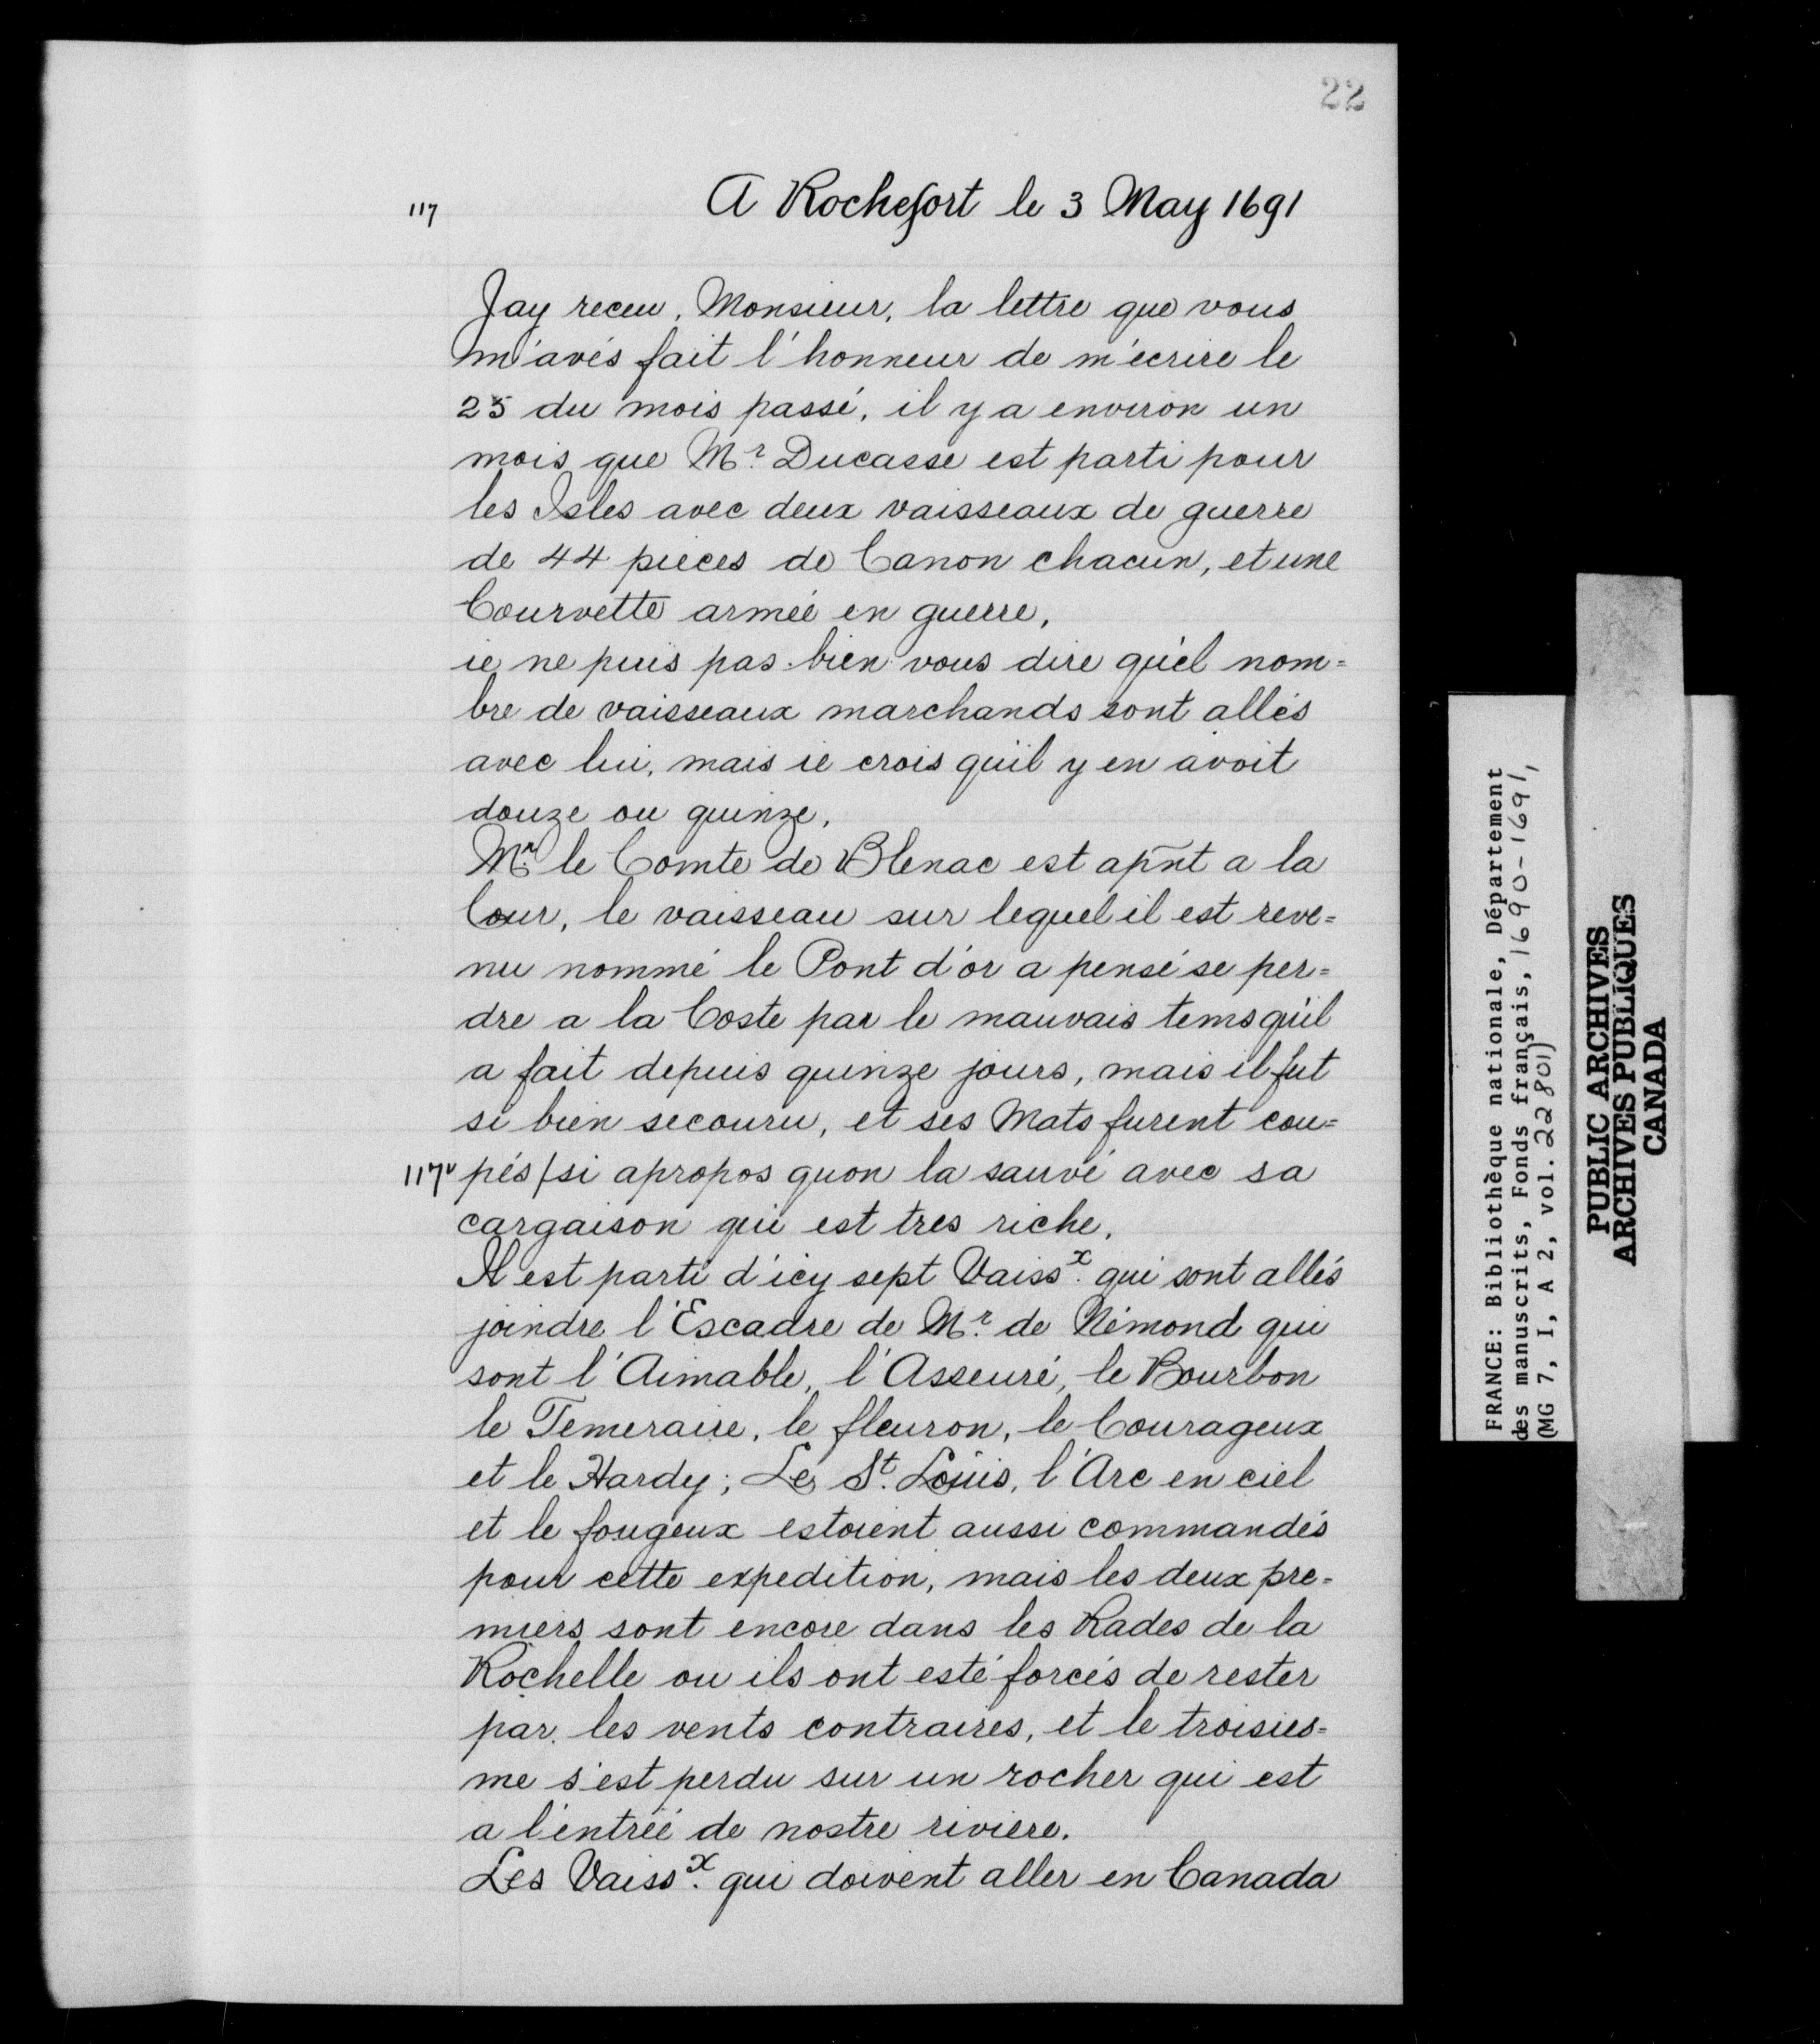 22
117
A Rochefort le 3 May 1691
Jay receu, Monsieur, la lettre que vous
m'avés fait l'honneur de m'écrire le
25 du mois passé, il y a environ un
mois que Mr. Ducasse est parti pour
les Isles avec deux vaisseaux de guerre
de 44 pieces de Canon chacun, et une
Courvette armée en guerre,
ie ne puis pas bien vous dire qu'el nom=
bre de vaisseaux marchands sont allés
avec lui, mais ie crois qu'il y en avoit
douze ou quinze,
Mr. le Comte de Blenac est apñt a la
Cour, le vaisseau sur lequel il est reve=
nu nommé le Pont d'or a pensé se per=
dre a la Coste par le mauvais tems qu'il
a fait depuis quinze jours, mais il fut
si bien secouru, et ses Mats furent cou=
117v pés/si apropos quon la sauvé avec sa
cargaison qui est tres riche,
Il est parti d'icy sept Vaissx. qui sont allés
joindre l'Escadre de Mr. de Némond qui
sont l'Aimable, l'Asseuré, le Bourbon
le Temeraire, le fleuron, le Courageux
et le Hardy; Le St. Loüis, l'Arc en ciel
et le fougeux estoient aussi commandés
pour cette expedition, mais les deux pre=
miers sont encore dans les Rades de la
Rochelle ou ils ont esté forcés de rester
par les vents contraires, et le troisies=
me s'est perdu sur un rocher qui est
a l'entrée de nostre riviere.
Les Vaissx. qui doivent aller en Canada
FRANCE: Bibliothèque nationale, Département
des manuscrits, Fonds français, 1690-1691,
(MG 7, I, A 2, vol. 22801)
PUBLIC ARCHIVES
ARCHIVES PUBLIQUES
CANADA